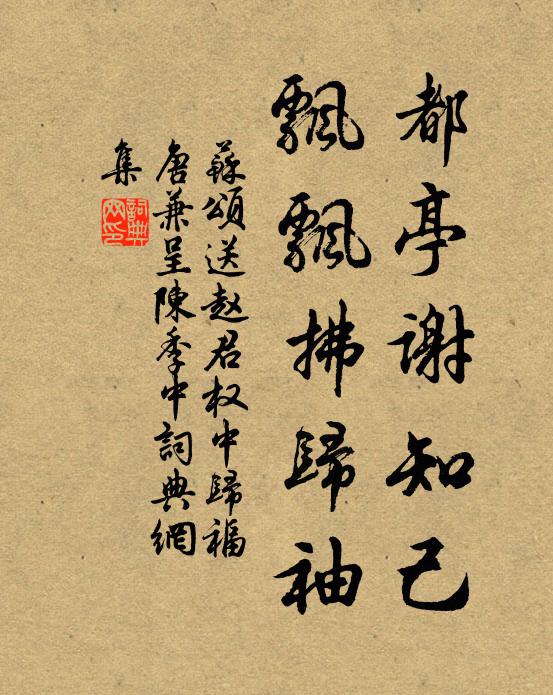 都亭谢知己
飄飄拂歸袖
蘇頌送赵君权中歸福
唐兼呈陳季中詞典網
集
詞典网印